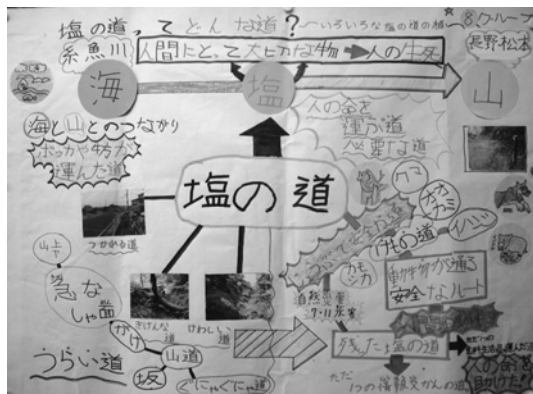 塩の道って どんな道？〜いろいろな塩の道の旅〜
⑧グループ
糸魚川
人間にとって大切な物→人の生死
長野松本
海
塩
山
海と山とのつながり
ボッカや牛が
運んだ道
人の命を
運ぶ道
必要な道
塩の道
つかれる道
クマ
オオカミ
イノシシ
けもの道
カモシカ
動物が通る
安全なルート
山上下
急な
しゃ面
がけ
きけんな道
けわしい道
山道
坂
ぐにゃぐにゃ道
うらい道
自然災害
7・11水害
残った塩の道
人の命を
助けた!